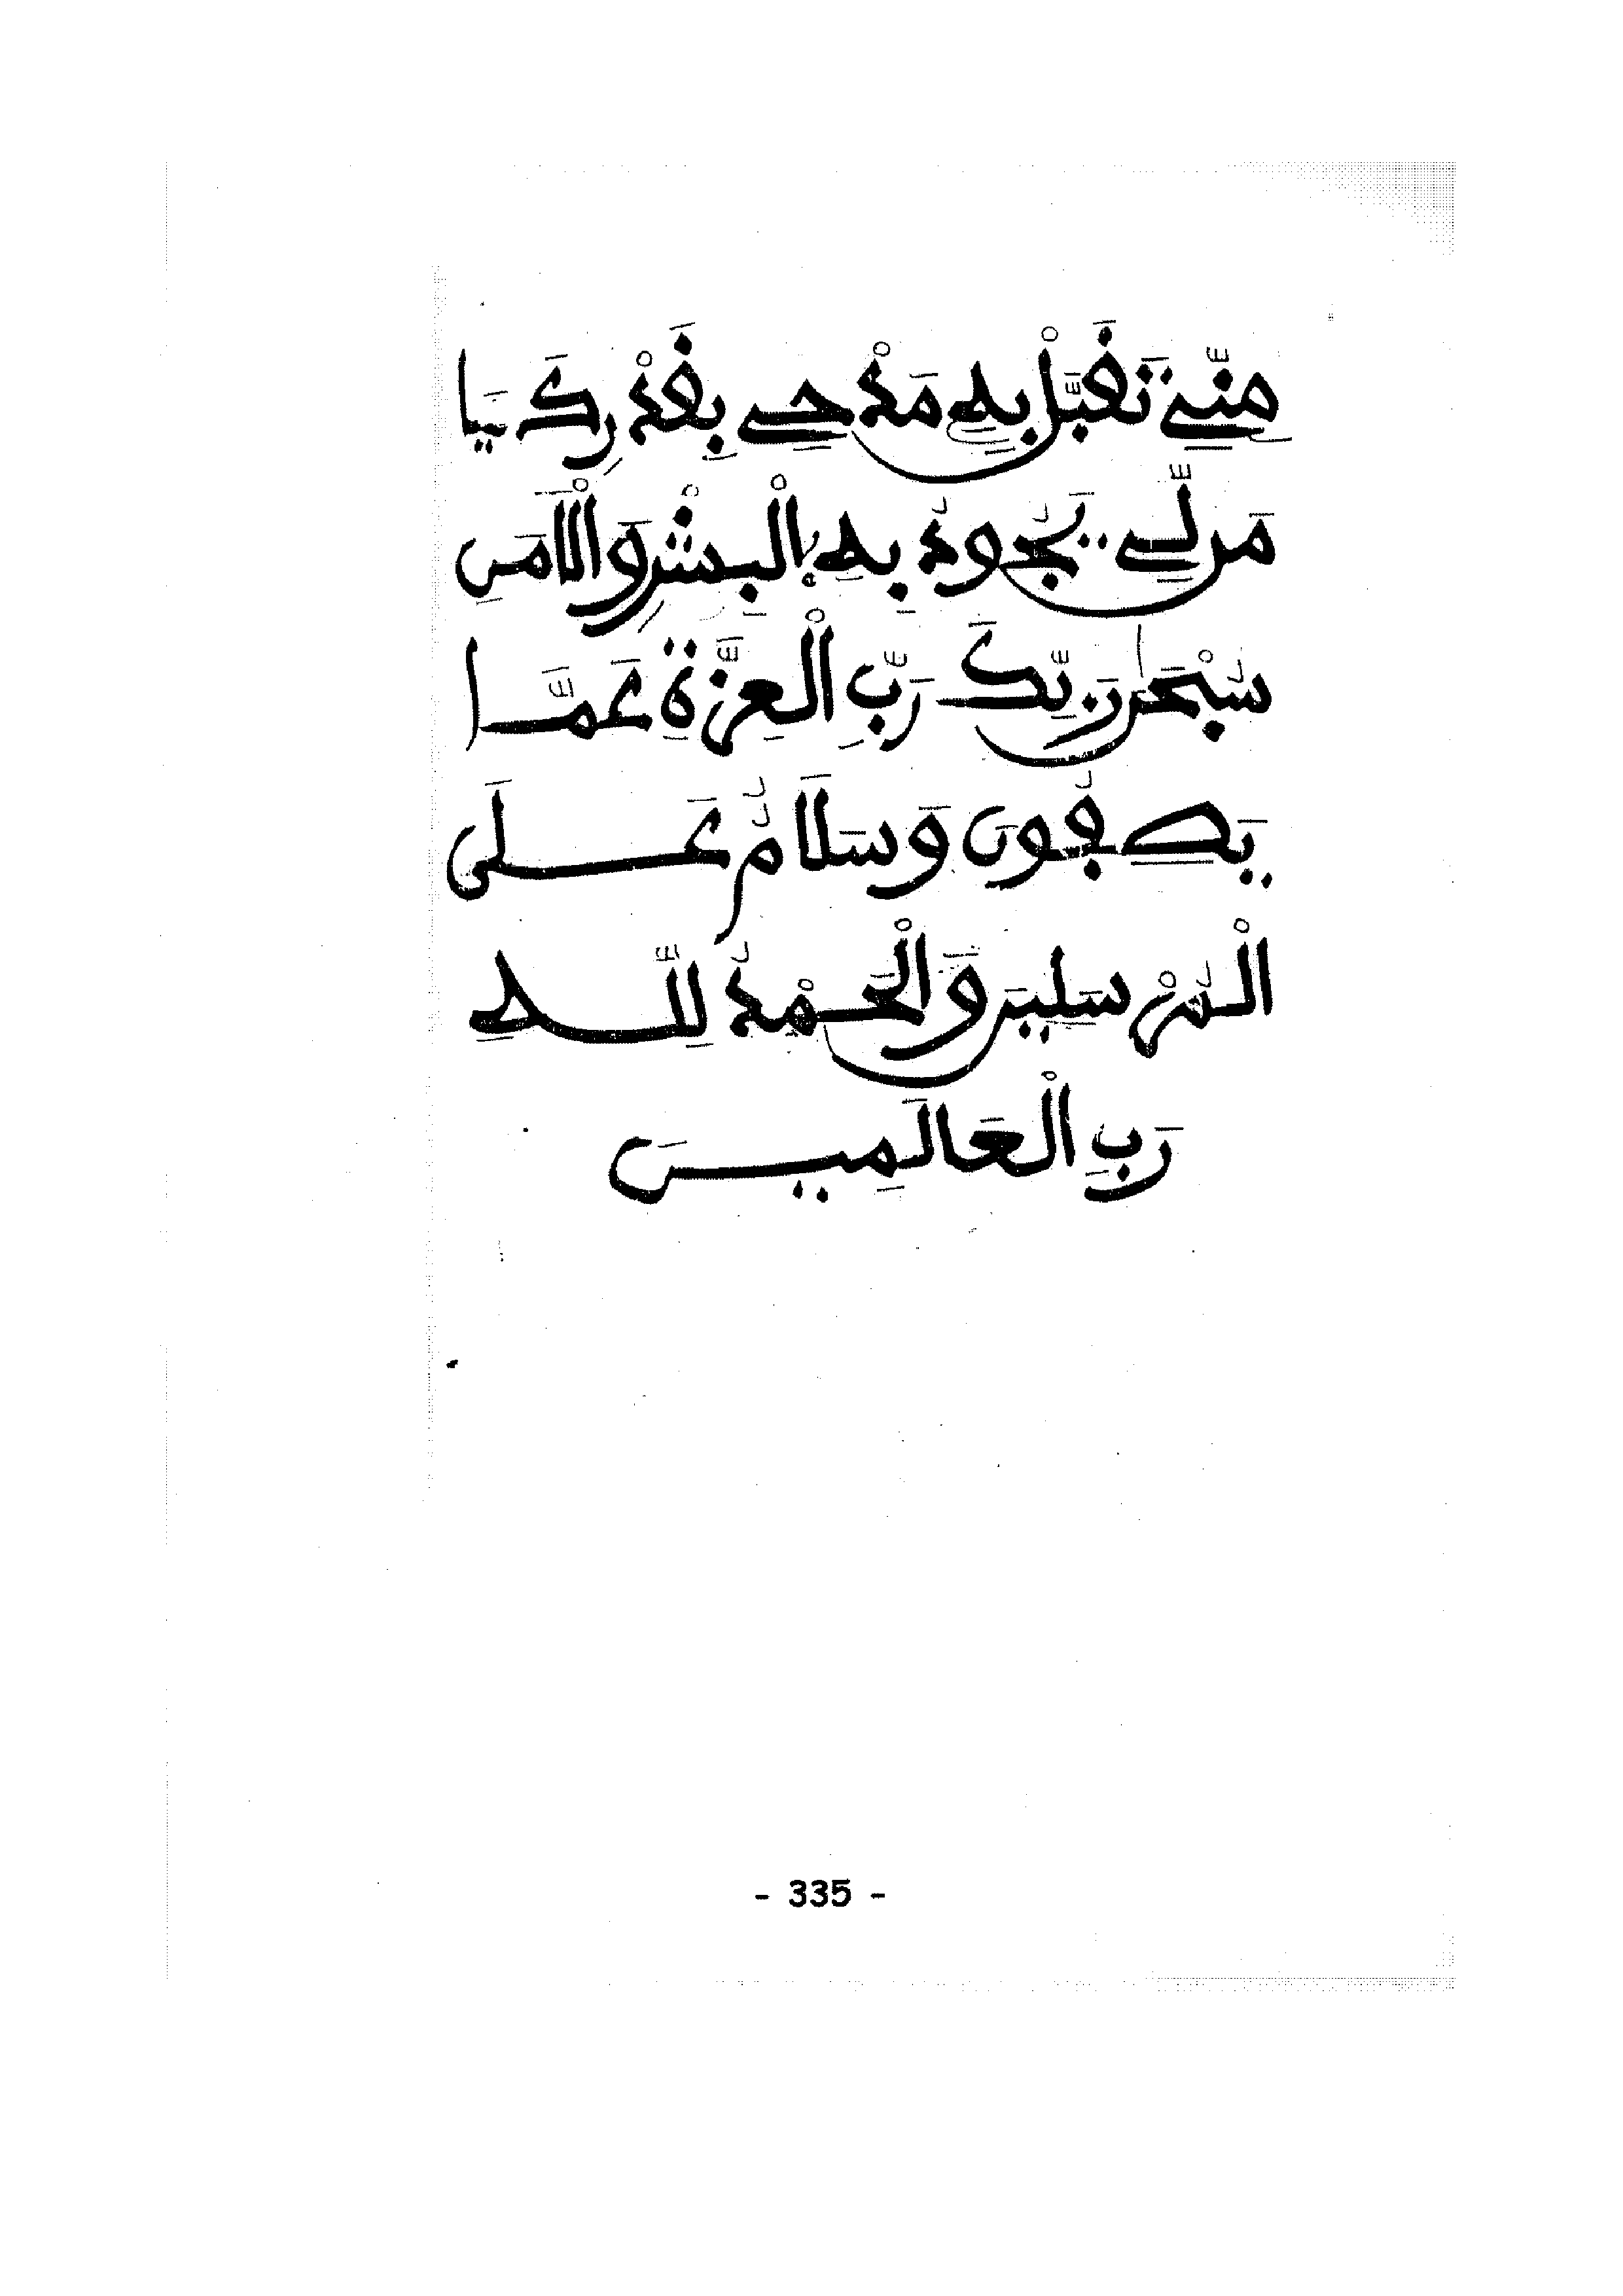 مِنِّے تَقَبَّلْ بِهِ مَدْحِے بِقَدْرِكَ يَا
مَن لِّے يَجُودُ بِهِ الْبِشْرِ وَالَامَنِ
سُبْحَٰنَ رَبِّكَ رَبِّ الْعِزَّةِ عَمَّا
يَصِفُونَ وَسَلَامٌ عَلَى
الْمُرْسَلِينَ وَالْحَمْدُ لِلَّهِ
رَبِّ الْعَالَمِينَ
- 335 -